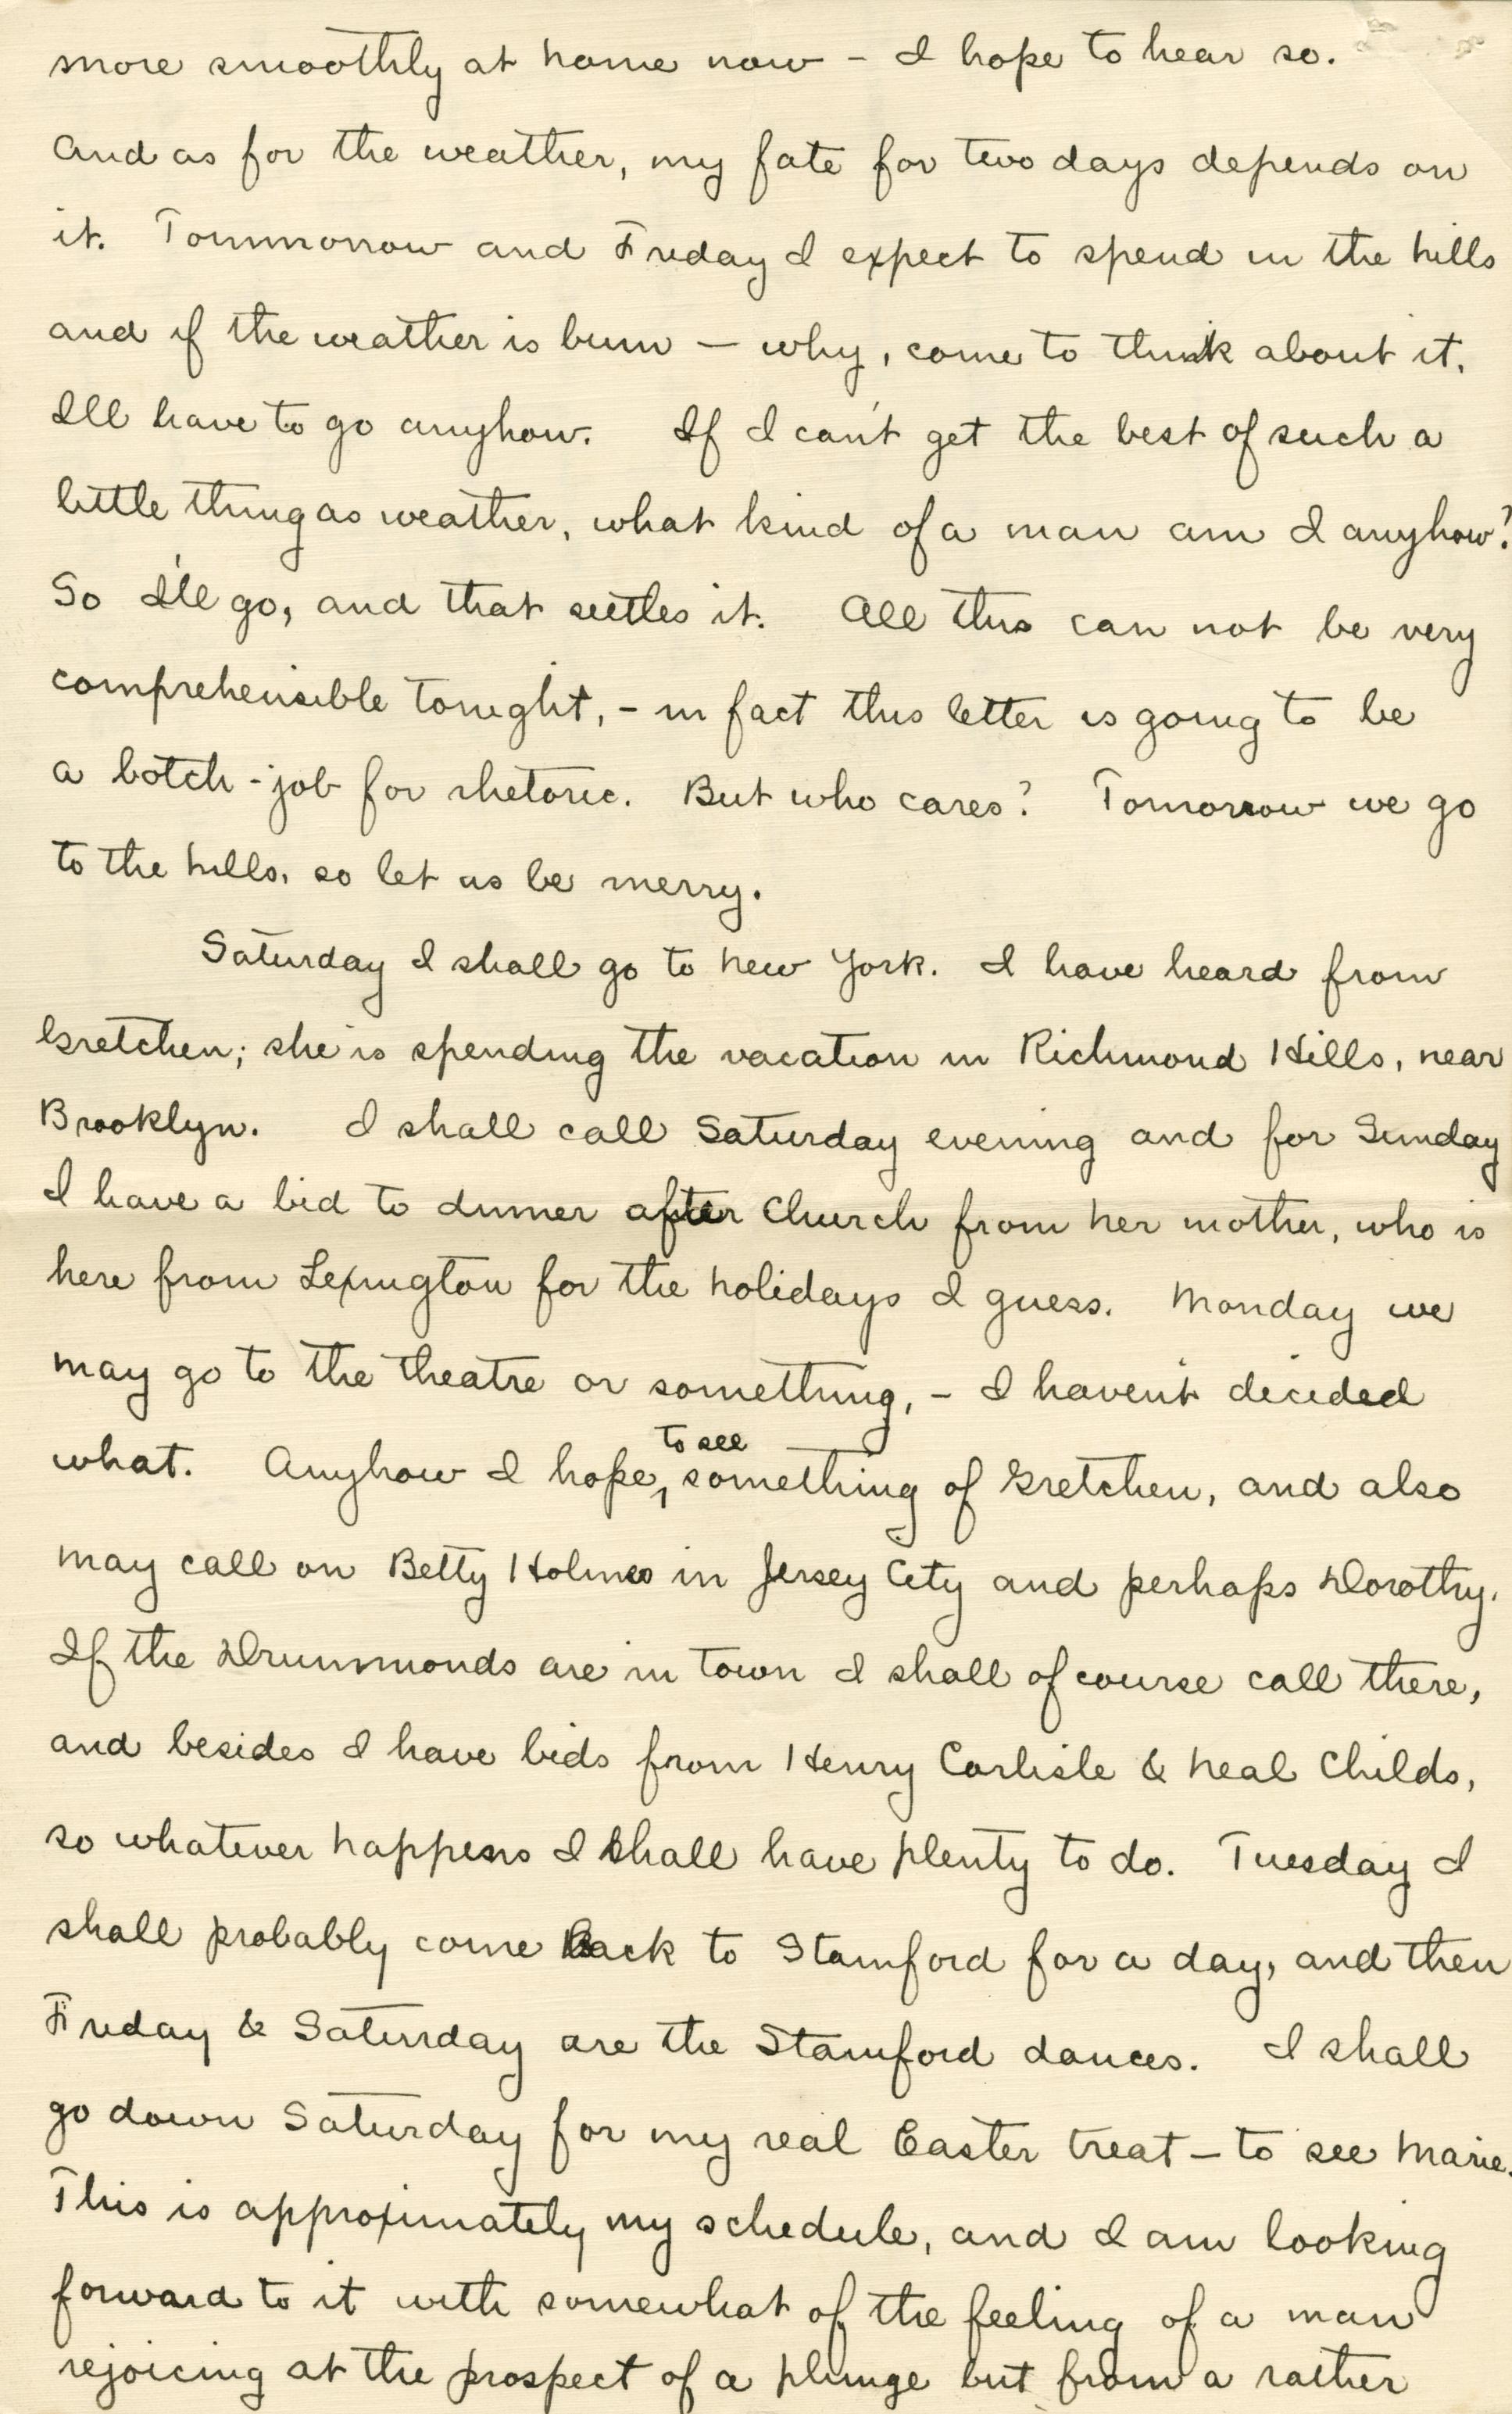 more smoothly at home now – I hope to hear so.
And as for the weather, my fate for two days depends on
it. Tommorrow and Friday I expect to spend in the hills
and if the weather is bum – why, come to think about it,
I'll have to go anyhow. If I can't get the best of such a
little thing as weather, what kind of a man am I anyhow?
So I'll go, and that settles it. All this can not be very
comprehensible tonight, – in fact this letter is going to be
a botch-job for rhetoric. But who cares? Tomorrow we go
to the hills, so let us be merry.
Saturday I shall go to New York. I have heard from
Gretchen; she is spending the vacation in Richmond Hills, near
Brooklyn. I shall call Saturday evening and for Sunday
I have a bid to dinner after Church from her mother, who is
here from Lexington for the holidays I guess. Monday we
may go to the theatre or something, – I haven't decided
what. Anyhow I hope, to see something of Gretchen, and also
may call on Betty Holmes in Jersey City and perhaps Dorothy.
If the Drummonds are in town I shall of course call there,
and besides I have bids from Henry Carlisle & Neal Childs,
so whatever happens I shall have plenty to do. Tuesday I
shall probably come back to Stamford for a day, and then
Friday & Saturday are the Stamford dances. I shall
go down Saturday for my real Easter treat – to see Marie.
This is approximately my schedule, and I am looking
forward to it with somewhat of the feeling of a man
rejoicing at the prospect of a plunge but from a rather